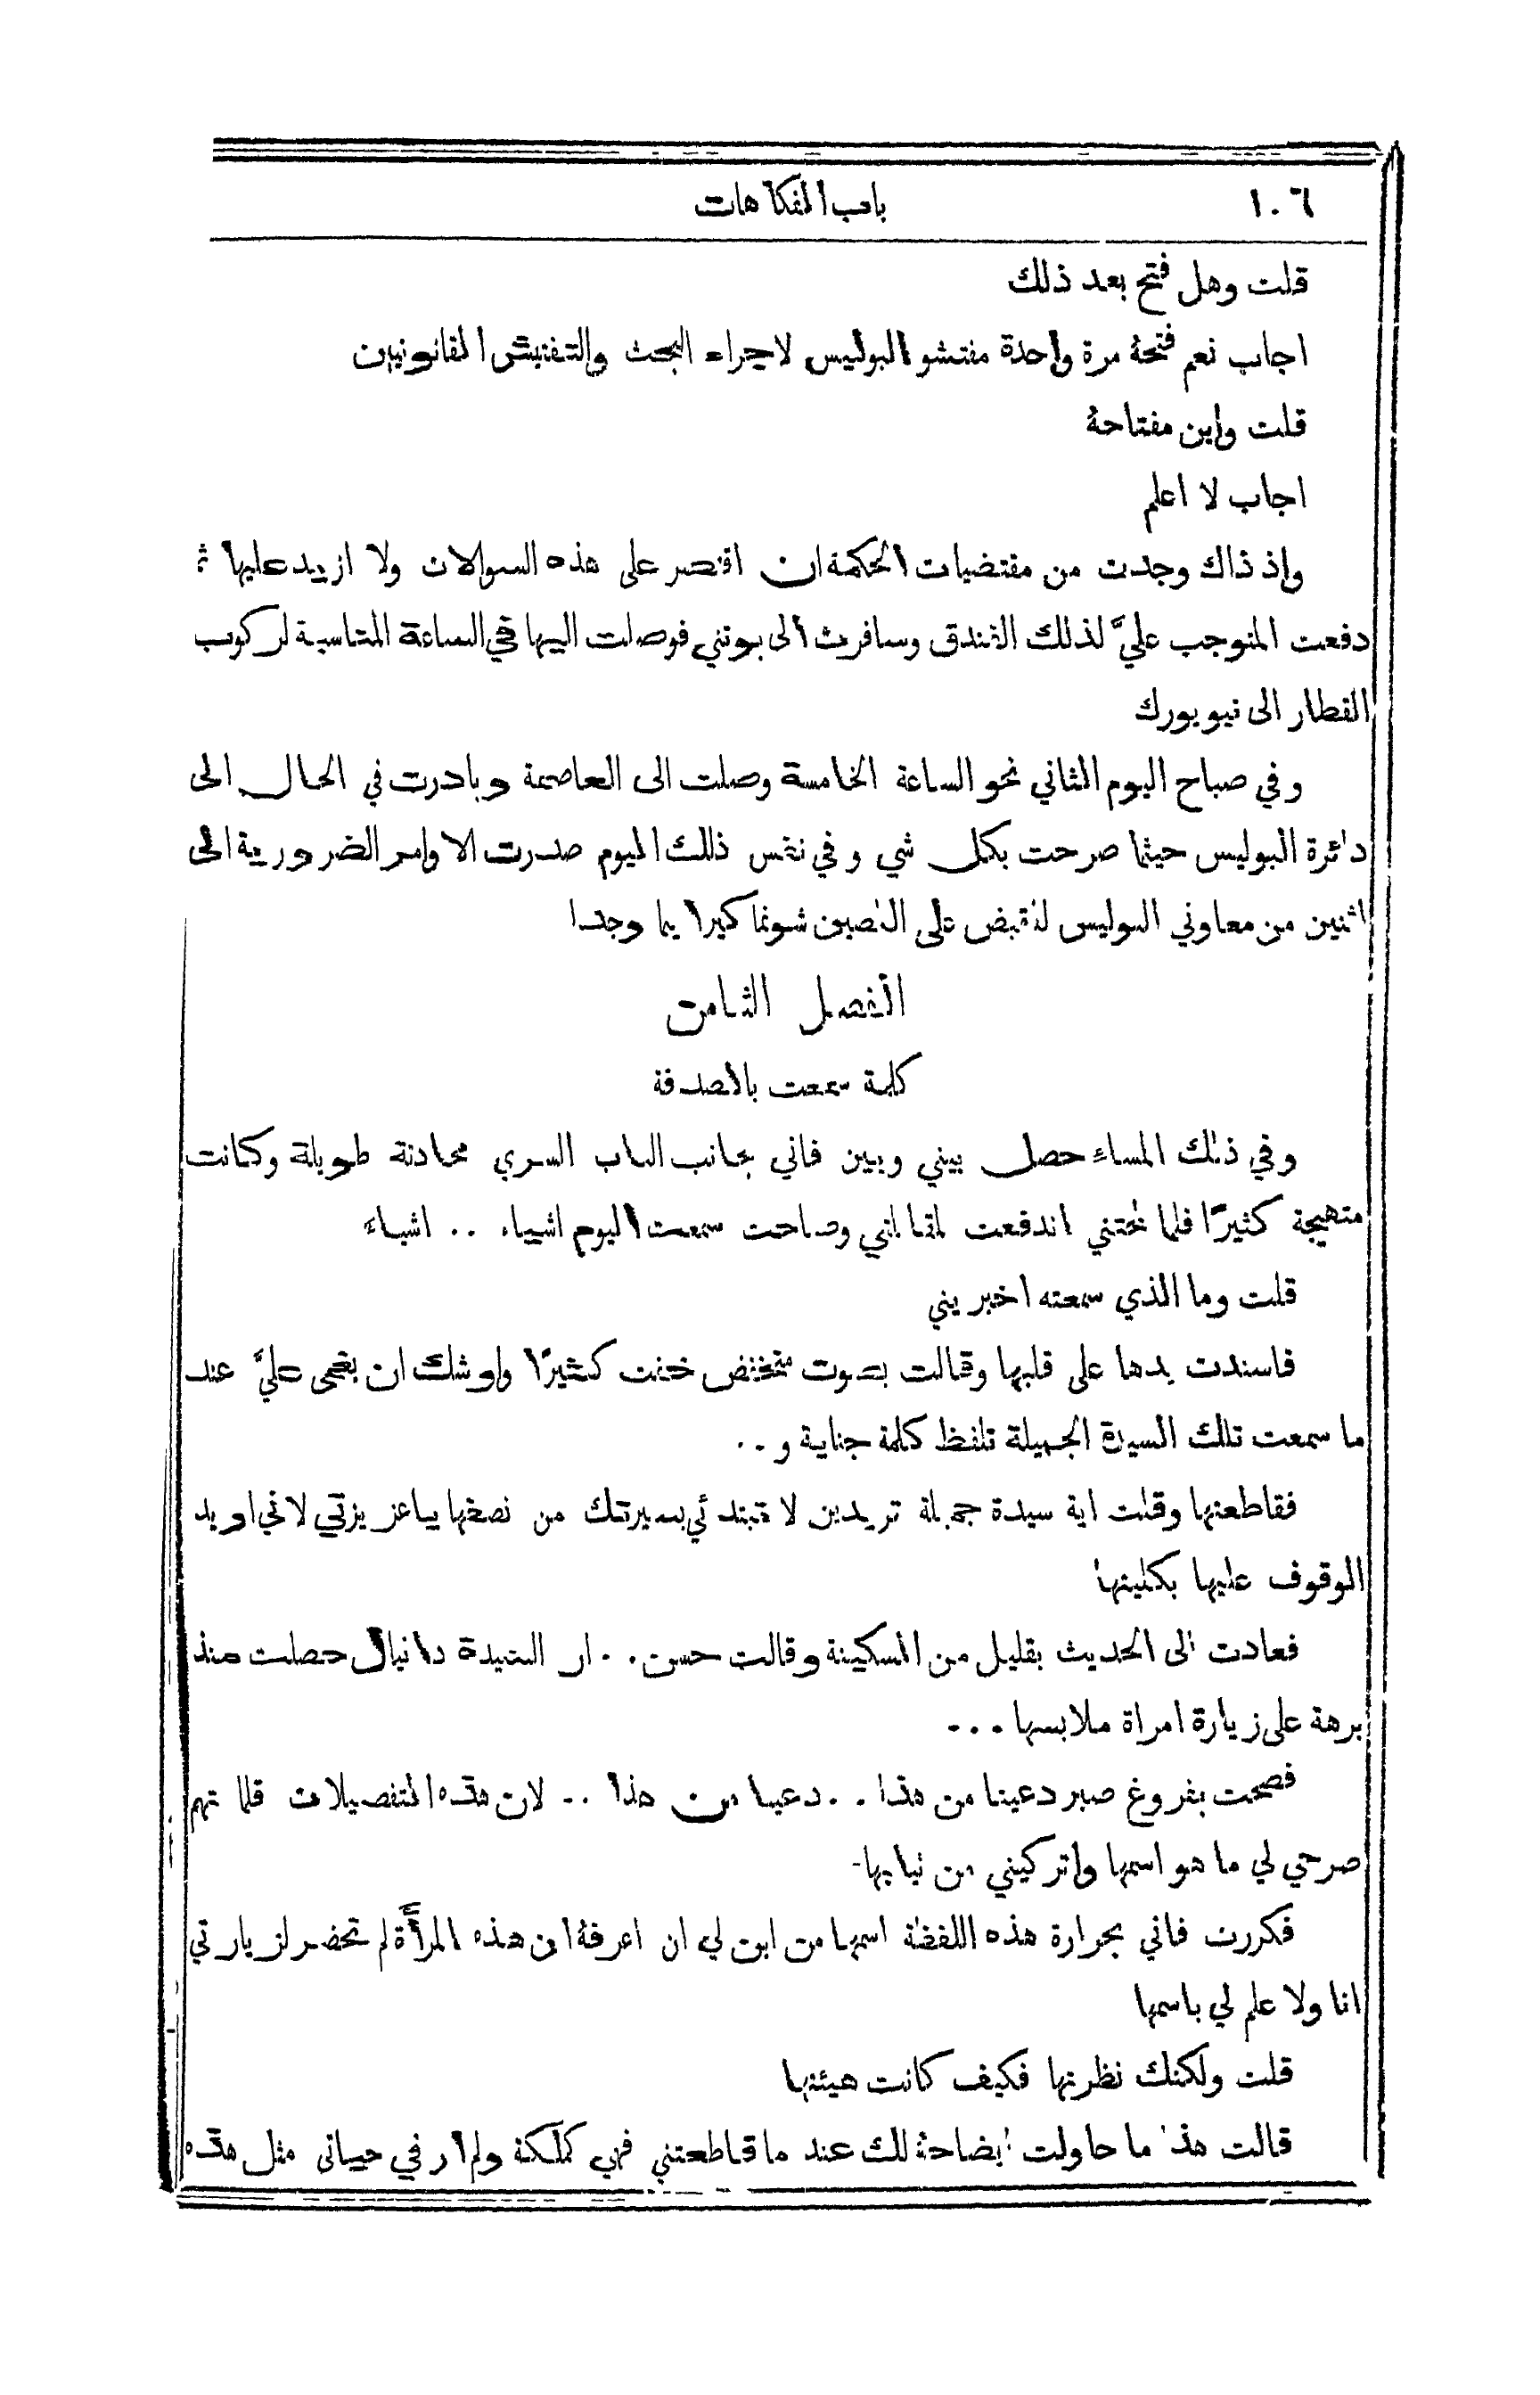 ١٠٦ باب الفكاهات
قلت وهل فتح بعد ذلك
اجاب نعم فتحهُ مرة واحدة مفتشو البوليس لاجراء البحث والتفتيش القانونيين
قلت واين مفتاحهُ
اجاب لا اعلم
واذ ذاك وجدت من مقتضيات الحكمة ان اقتصر على هذه السوالات ولا ازيد عليها ثم
دفعت المتوجب عليَّ لذلك الفندق وسافرت الى بوتني فوصلت اليها في الساعة المناسبة لركوب
القطار الى نيويورك
وفي صباح اليوم الثاني نحو الساعة الخامسة وصلت الى العاصمة وبادرت في الحال الى
دائرة البوليس حيثما صرحت بكل شي وفي نفس ذلك اليوم صدرت الاوامر الضرورية الى
اثنين من معاوني البوليس لتقبض على اللصين شونماكيرا يما وجدا
الفصل الثامن
كلمة سمعت بالصدفة
وفي ذلك المساء حصل بيني وبين فاني بجانب الباب السري محادثة طويلة وكانت
متهيجة كثيرًا فلما لمحتني اندفعت لمقابلتي وصاحت سمعت اليوم اشياء .. اشياء
قلت وما الذي سمعته اخبريني
فاسندت يدها على قلبها وقالت بصوت منخفض خفت كثيرًا واوشك ان يغمى عليَّ عند
ما سمعت تلك السيدة الجميلة تلفظ كلمة جناية و..
فقاطعتها وقلت اية سيدة جميلة تريدين لا تبتدئي بسيرتك من نصفها يا عزيزتي لاني اريد
الوقوف عليها بكليتها
فعادت الى الحديث بقليل من السكينة وقالت حسن .. ان السيدة دانيال حصلت منذ
برهة على زيارة امراة ملابسها ...
فصحت بفروغ صبر دعينا من هذا .. دعينا من هذا .. لان هذه التفصيلات قلما تهم
صرحي لي ما هو اسمها واتركيني من ثيابها
فكررت فاني بحرارة هذه اللفظة اسمها من اين لي ان اعرفهُ ان هذه المرأَة لم تحضر لزيارتي
انا ولا علم لي باسمها
قلت ولكنك نظرتها فكيف كانت هيئتها
قالت هذا ما حاولت ايضاحهُ لك عند ما قاطعتني فهي كملكة ولم ار في حياتي مثل هذه